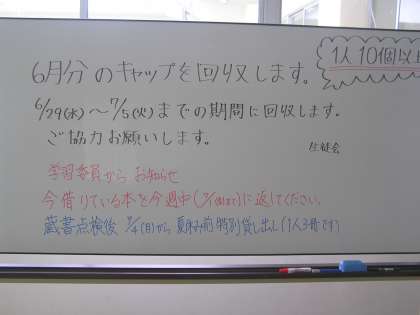 1人10個以上
6月分のキャップを回収します。
6/29(水)～7/5(火)までの期間に回収します。
ご協力お願いします。
生徒会
学習委員からお知らせ
今借りている本を今週中(7/1まで)に返してください。
蔵書点検後 7/4(月)から 夏休み前特別貸し出し(1人3冊です)